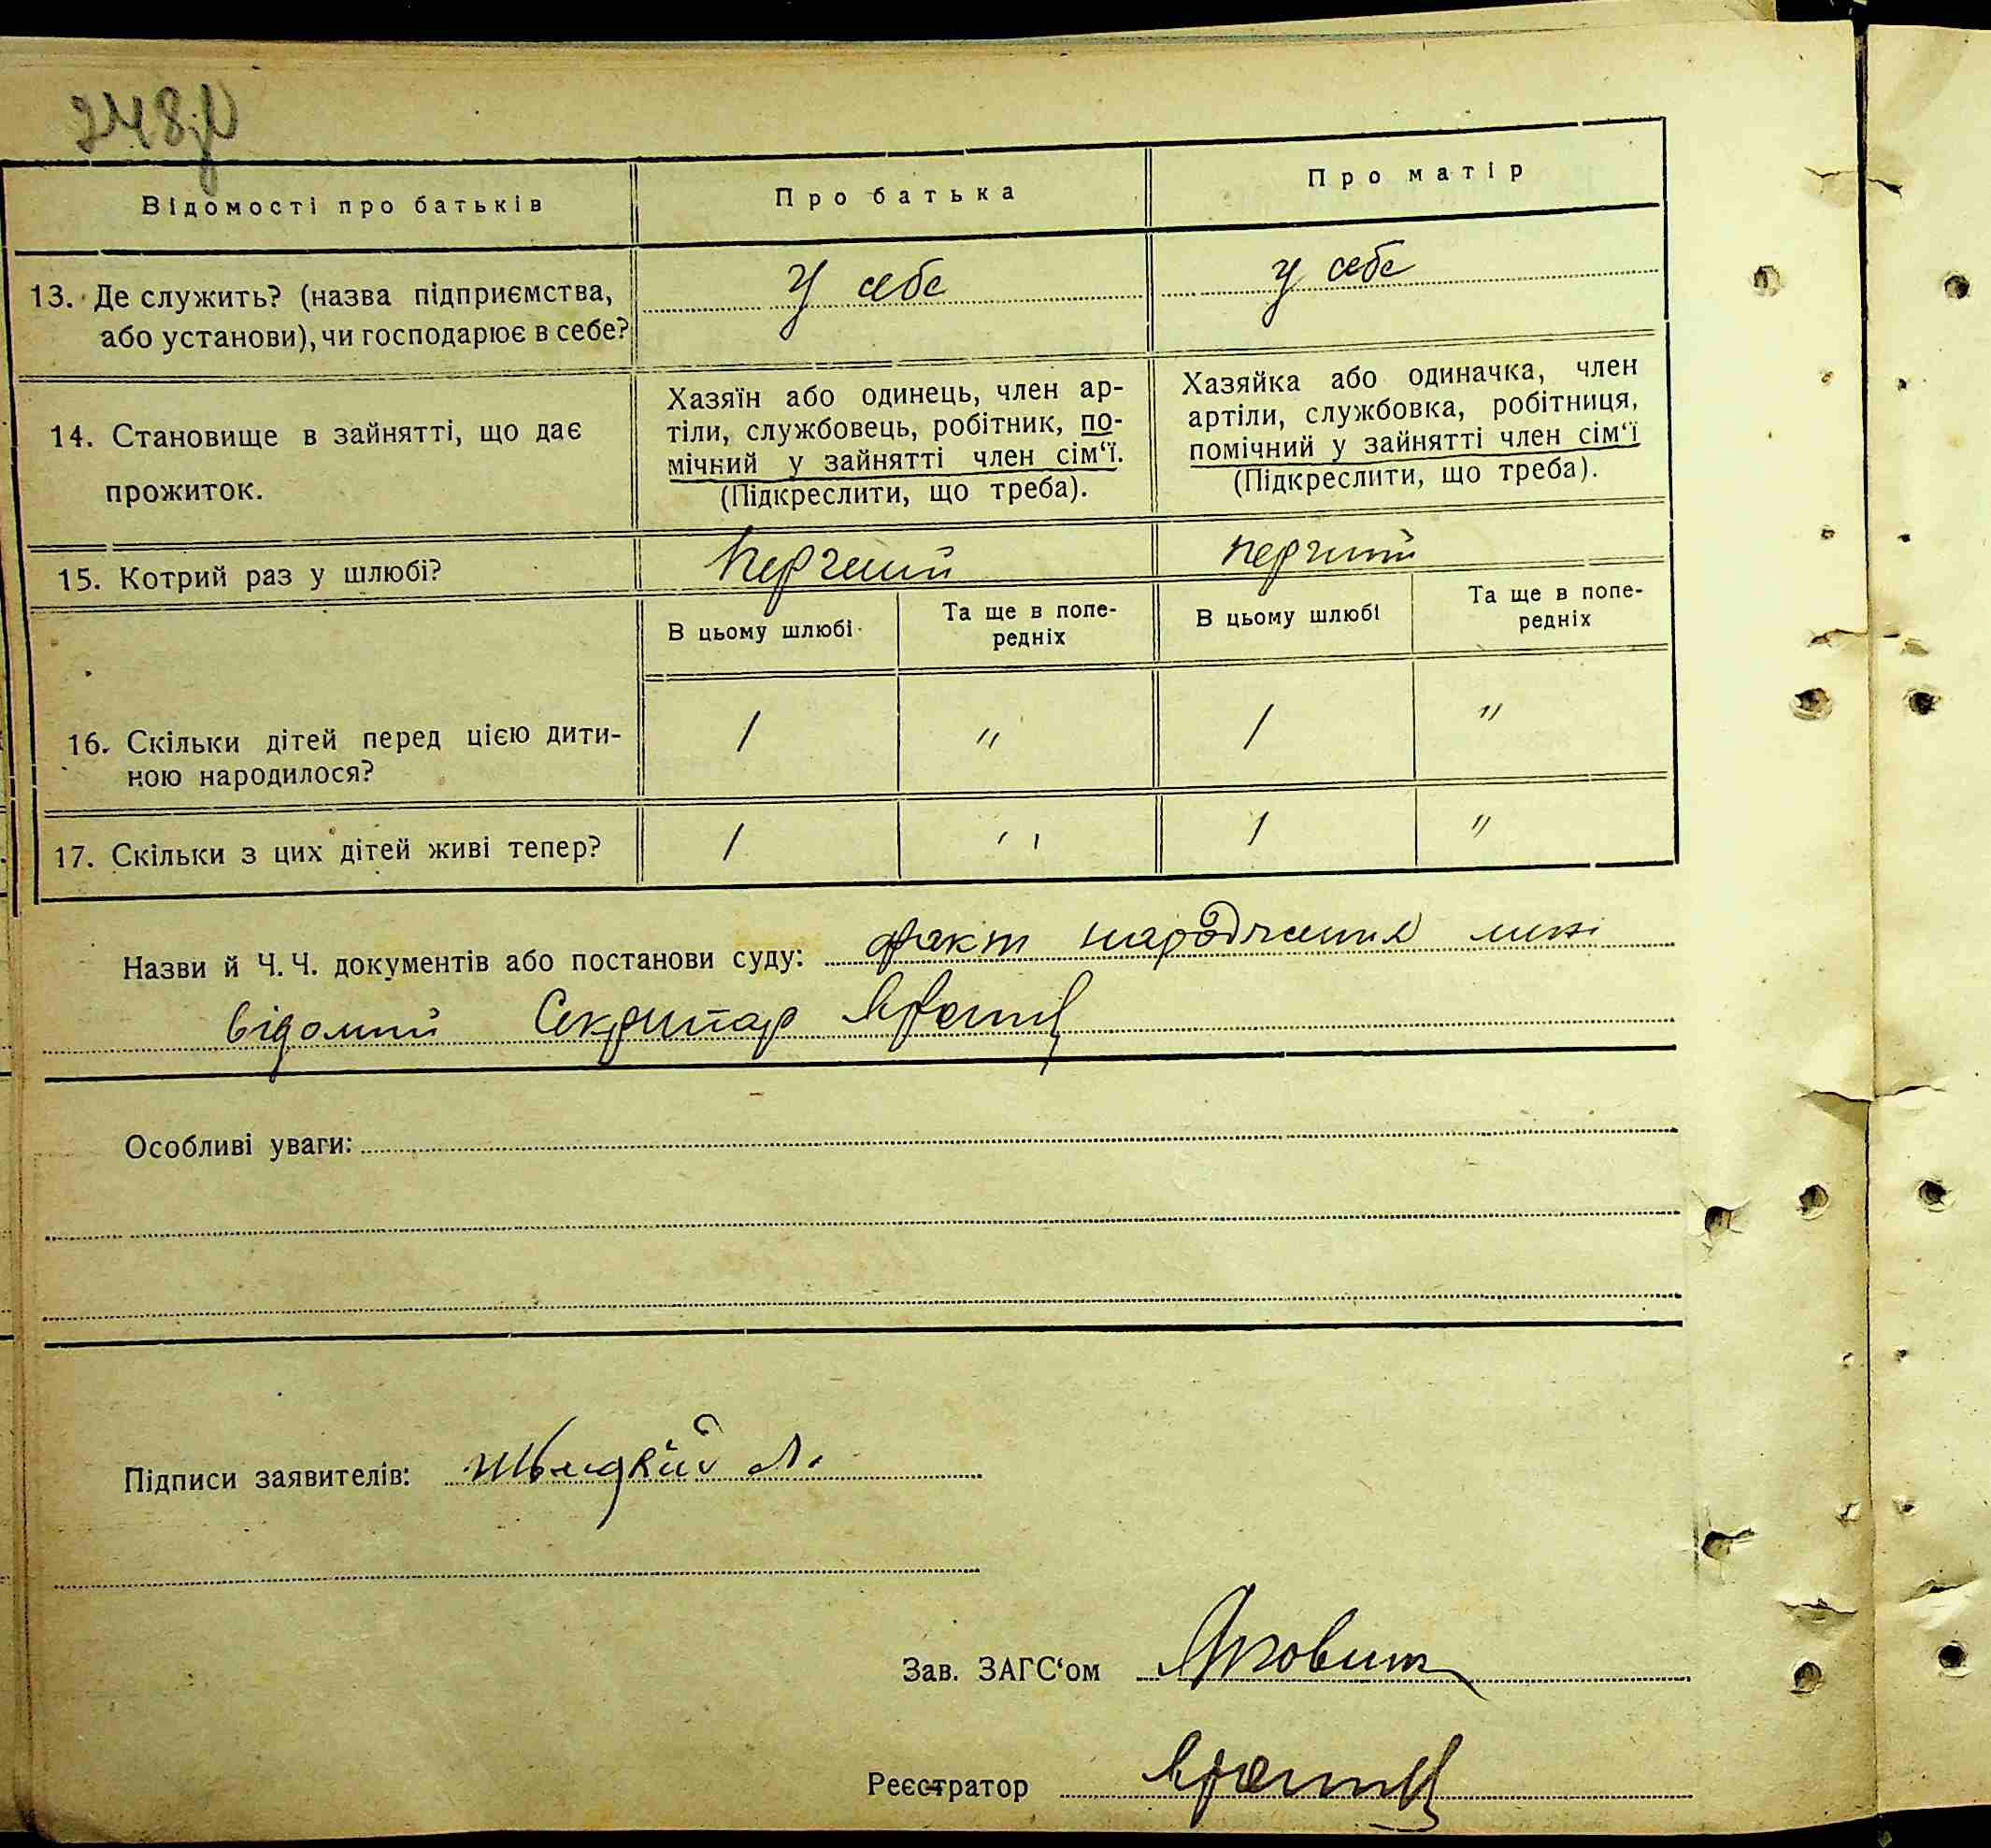 248
Відомості про батьків
Про батька
Про матір
13. Де служить? (назва підприємства,
або установи), чи господарює в себе?
У себе
у себе
14. Становище в зайнятті, що дає
прожиток.
Хазяїн або одинець, член ар-
тіли, службовець, робітник, по-
мічний у зайнятті член сім‘ї.
(Підкреслити, що треба).
Хазяйка або одиначка, член
артіли, службовка, робітниця,
помічний у зайнятті член сім‘ї
(Підкреслити, що треба).
15. Котрий раз у шлюбі?
перший
перший
В цьому шлюбі
Та ще в попе-
редніх
В цьому шлюбі
Та ще в попе-
редніх
16. Скільки дітей перед цією дити-
ною народилося?
1 " 1 "
17. Скільки з цих дітей живі тепер?
1 " 1 "
Назви й Ч. Ч. документів або постанови суду: факт народження мені
відомий Секритар
Особливі уваги:
Підписи заявителів: Швидкий Л.
Зав. ЗАГС‘ом
Реєстратор